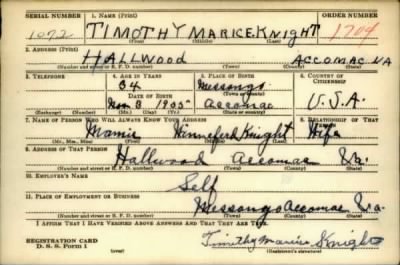 SERIAL NUMBER 1. NAME (Print) ORDER NUMBER
1072 TIMOTHY MARICE KNIGHT 1704
(First) (Middle) (Last)
2. ADDRESS (Print)
HALLWOOD ACCOMAC VA
(Number and street or R. F. D. number) (Town) (County) (State)
3. TELEPHONE 4. AGE IN YEARS 5. PLACE OF BIRTH 6. COUNTRY OF CITIZENSHIP
34 Messongo
DATE OF BIRTH (Town or county)
Nov 8 1905 Accomac U.S.A.
(Exchange) (Number) (Mo.) (Day) (Yr.) (State or country)
7. NAME OF PERSON WHO WILL ALWAYS KNOW YOUR ADDRESS 8. RELATIONSHIP OF THAT PERSON
Mamie Winneford Knight Wife
(Mr., Mrs., Miss) (First) (Middle) (Last)
9. ADDRESS OF THAT PERSON
Hallwood Accomac Va.
(Number and street or R. F. D. number) (Town) (County) (State)
10. EMPLOYER'S NAME
Self
11. PLACE OF EMPLOYMENT OR BUSINESS
Messongo Accomac Va.
(Number and street or R. F. D. number) (Town) (County) (State)
I AFFIRM THAT I HAVE VERIFIED ABOVE ANSWERS AND THAT THEY ARE TRUE.
REGISTRATION CARD Timothy Marice Knight
D. S. S. Form 1 (Registrant's signature)